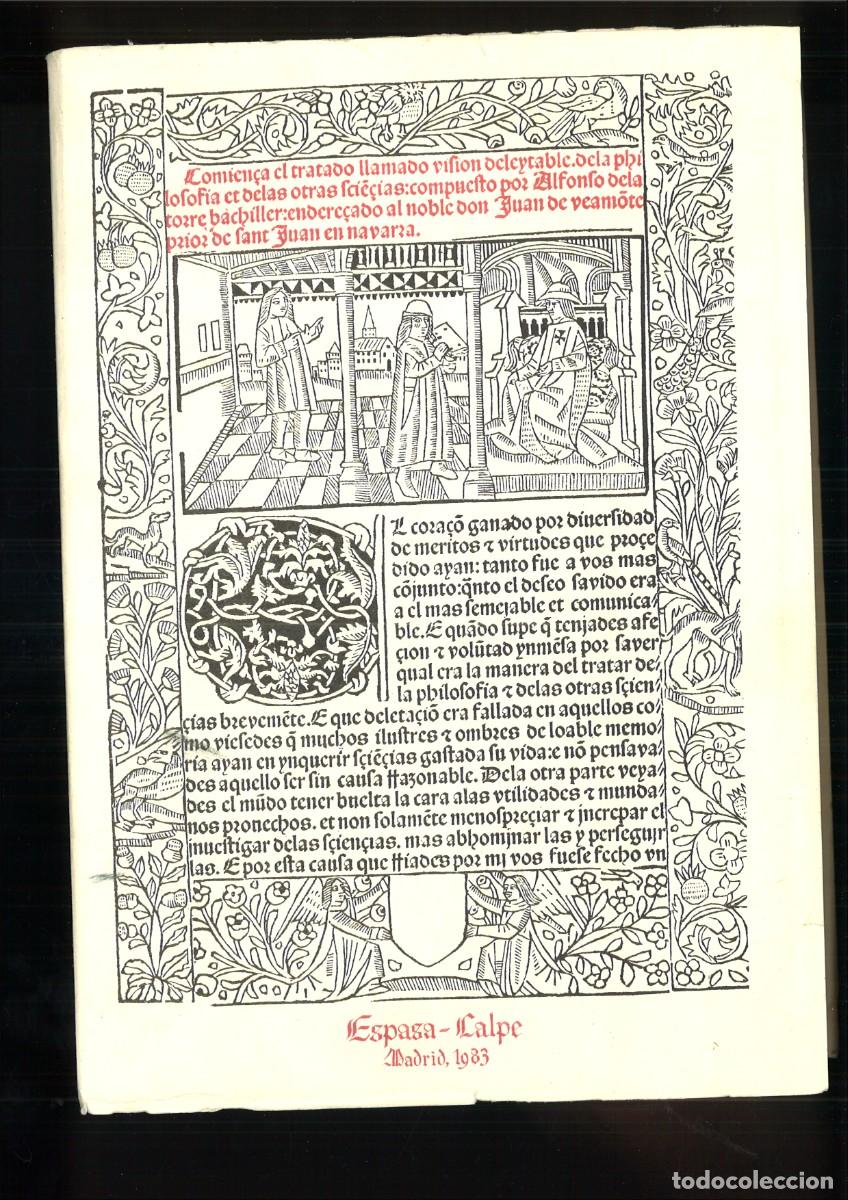 Comiença el tratado llamado vision deleytable.dela phi
losofia et delas otras sciẽçias:compuesto por Alfonso dela
torre bachiller:endereçado al noble don Juan de veamõte
prior de sant Juan en navarra.
L coraçõ ganado por diversidad
de meritos ⁊ virtudes que proçe
dido ayan: tanto fue a vos mas
cõjunto:q̃nto el deseo savido era
a el mas semejable et comunica-
ble. E quãdo supe q̃ tenjades afe
çion ⁊ volũtad ynmẽsa por saver
qual era la manera del tratar de-
la philosofia ⁊ delas otras sçien-
çias brevemẽte. E que deletaçiõ era fallada en aquellos co
mo viesedes q̃ muchos ilustres ⁊ ombres de loable memo
ria ayan en ynquerir sçiẽçias gastada su vida:e nõ pensava
des aquello ser sin causa rrazonable. Dela otra parte veya
des el mũdo tener buelta la cara alas vtilidades ⁊ munda
nos provechos. et non solamẽte menospreçiar ⁊ jncrepar el
jnuestigar delas sçiençias. mas abhominar las y perseguir
las. E por esta causa que rriades por mj vos fuese fecho vn
Espasa-Calpe
Madrid, 1983
todocoleccion